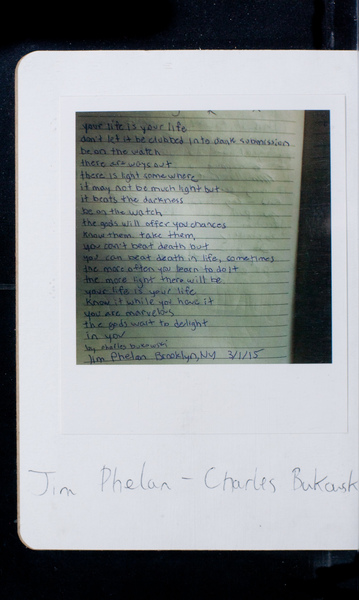 your life is your life
don't let it be clubbed into dank submission
be on the watch
there are ways out
there is light somewhere
it may not be much light but
it beats the darkness
be on the watch
the gods will offer you chances
know them take them,
you can't beat death but
you can beat death in life, sometimes
the more often you learn to do it
the more light there will be
your life is your life
know it while you have it
you are marvelous
the gods wait to delight
in you
by charles bukowski
Jim Phelan Brooklyn, NY 3/1/15
Jim Phelan - Charles Bukowsk